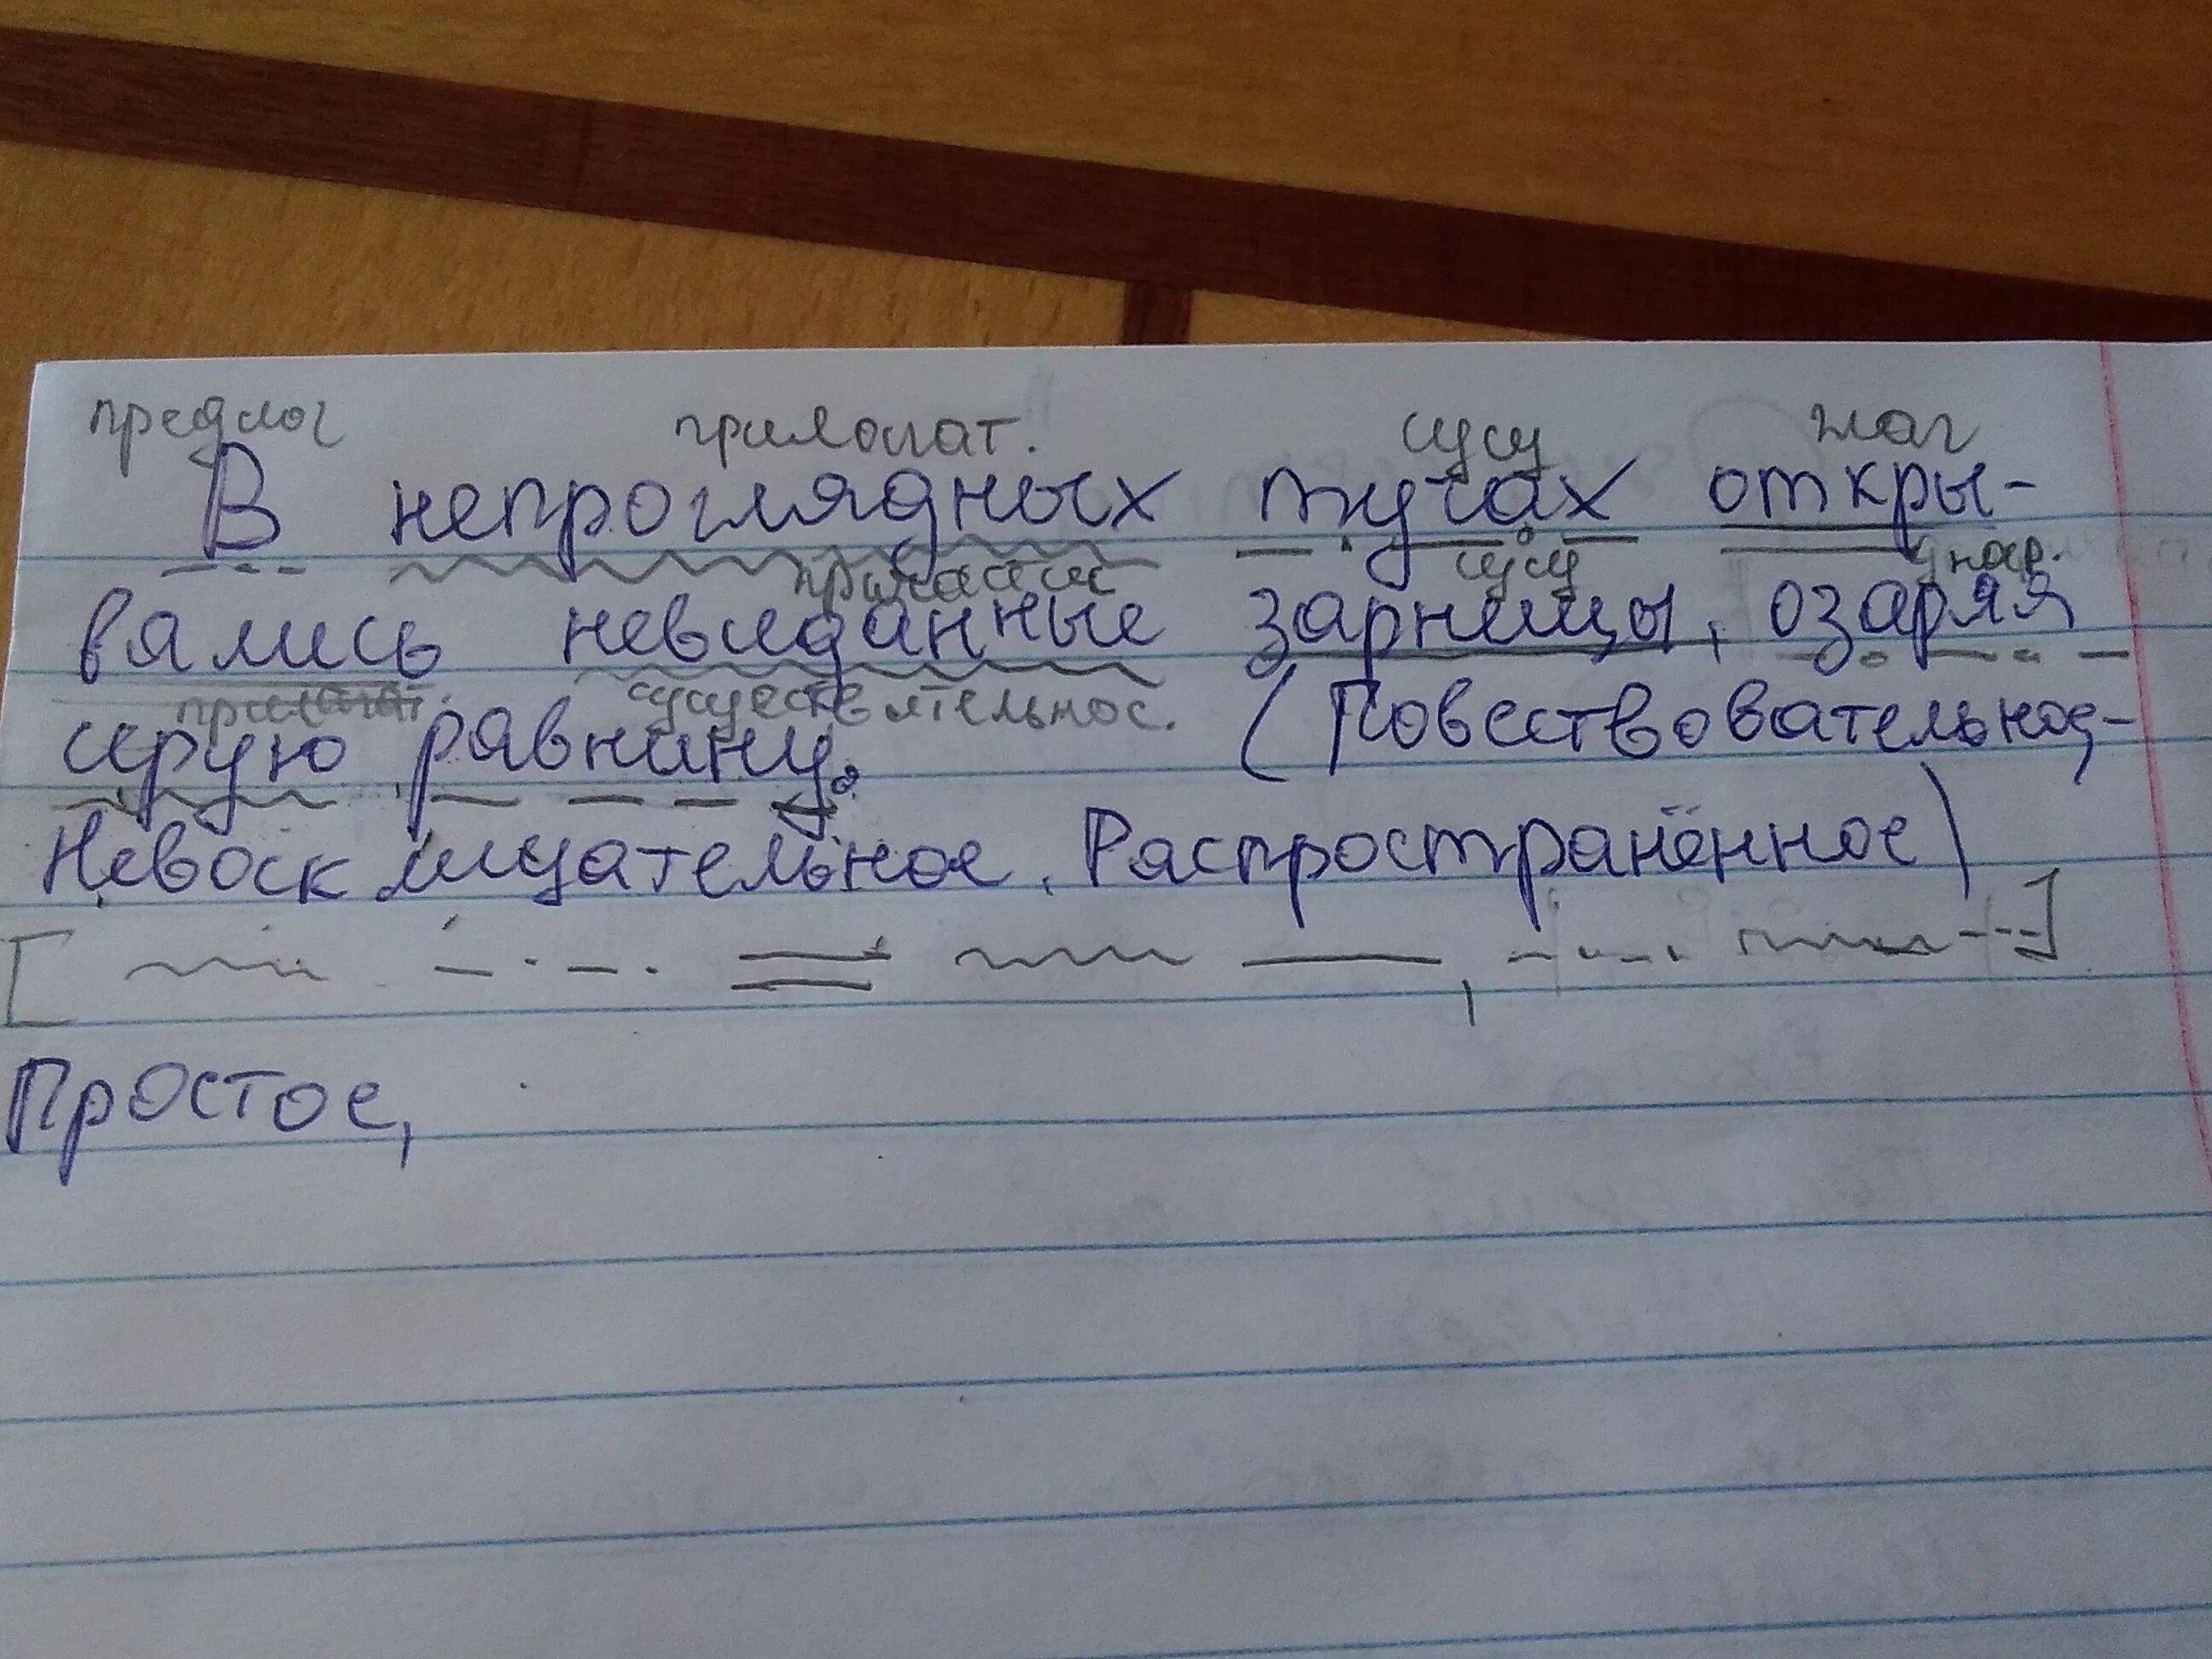 предлог прилагат. сущ глаг
В непроглядных тучах откры-
сущ нар.
вались невиданные зарницы, озаряя
прилагат. существительнос.
серую равнину. (Повествовательное,-
Невосклицательное. Распространённое)
Простое,